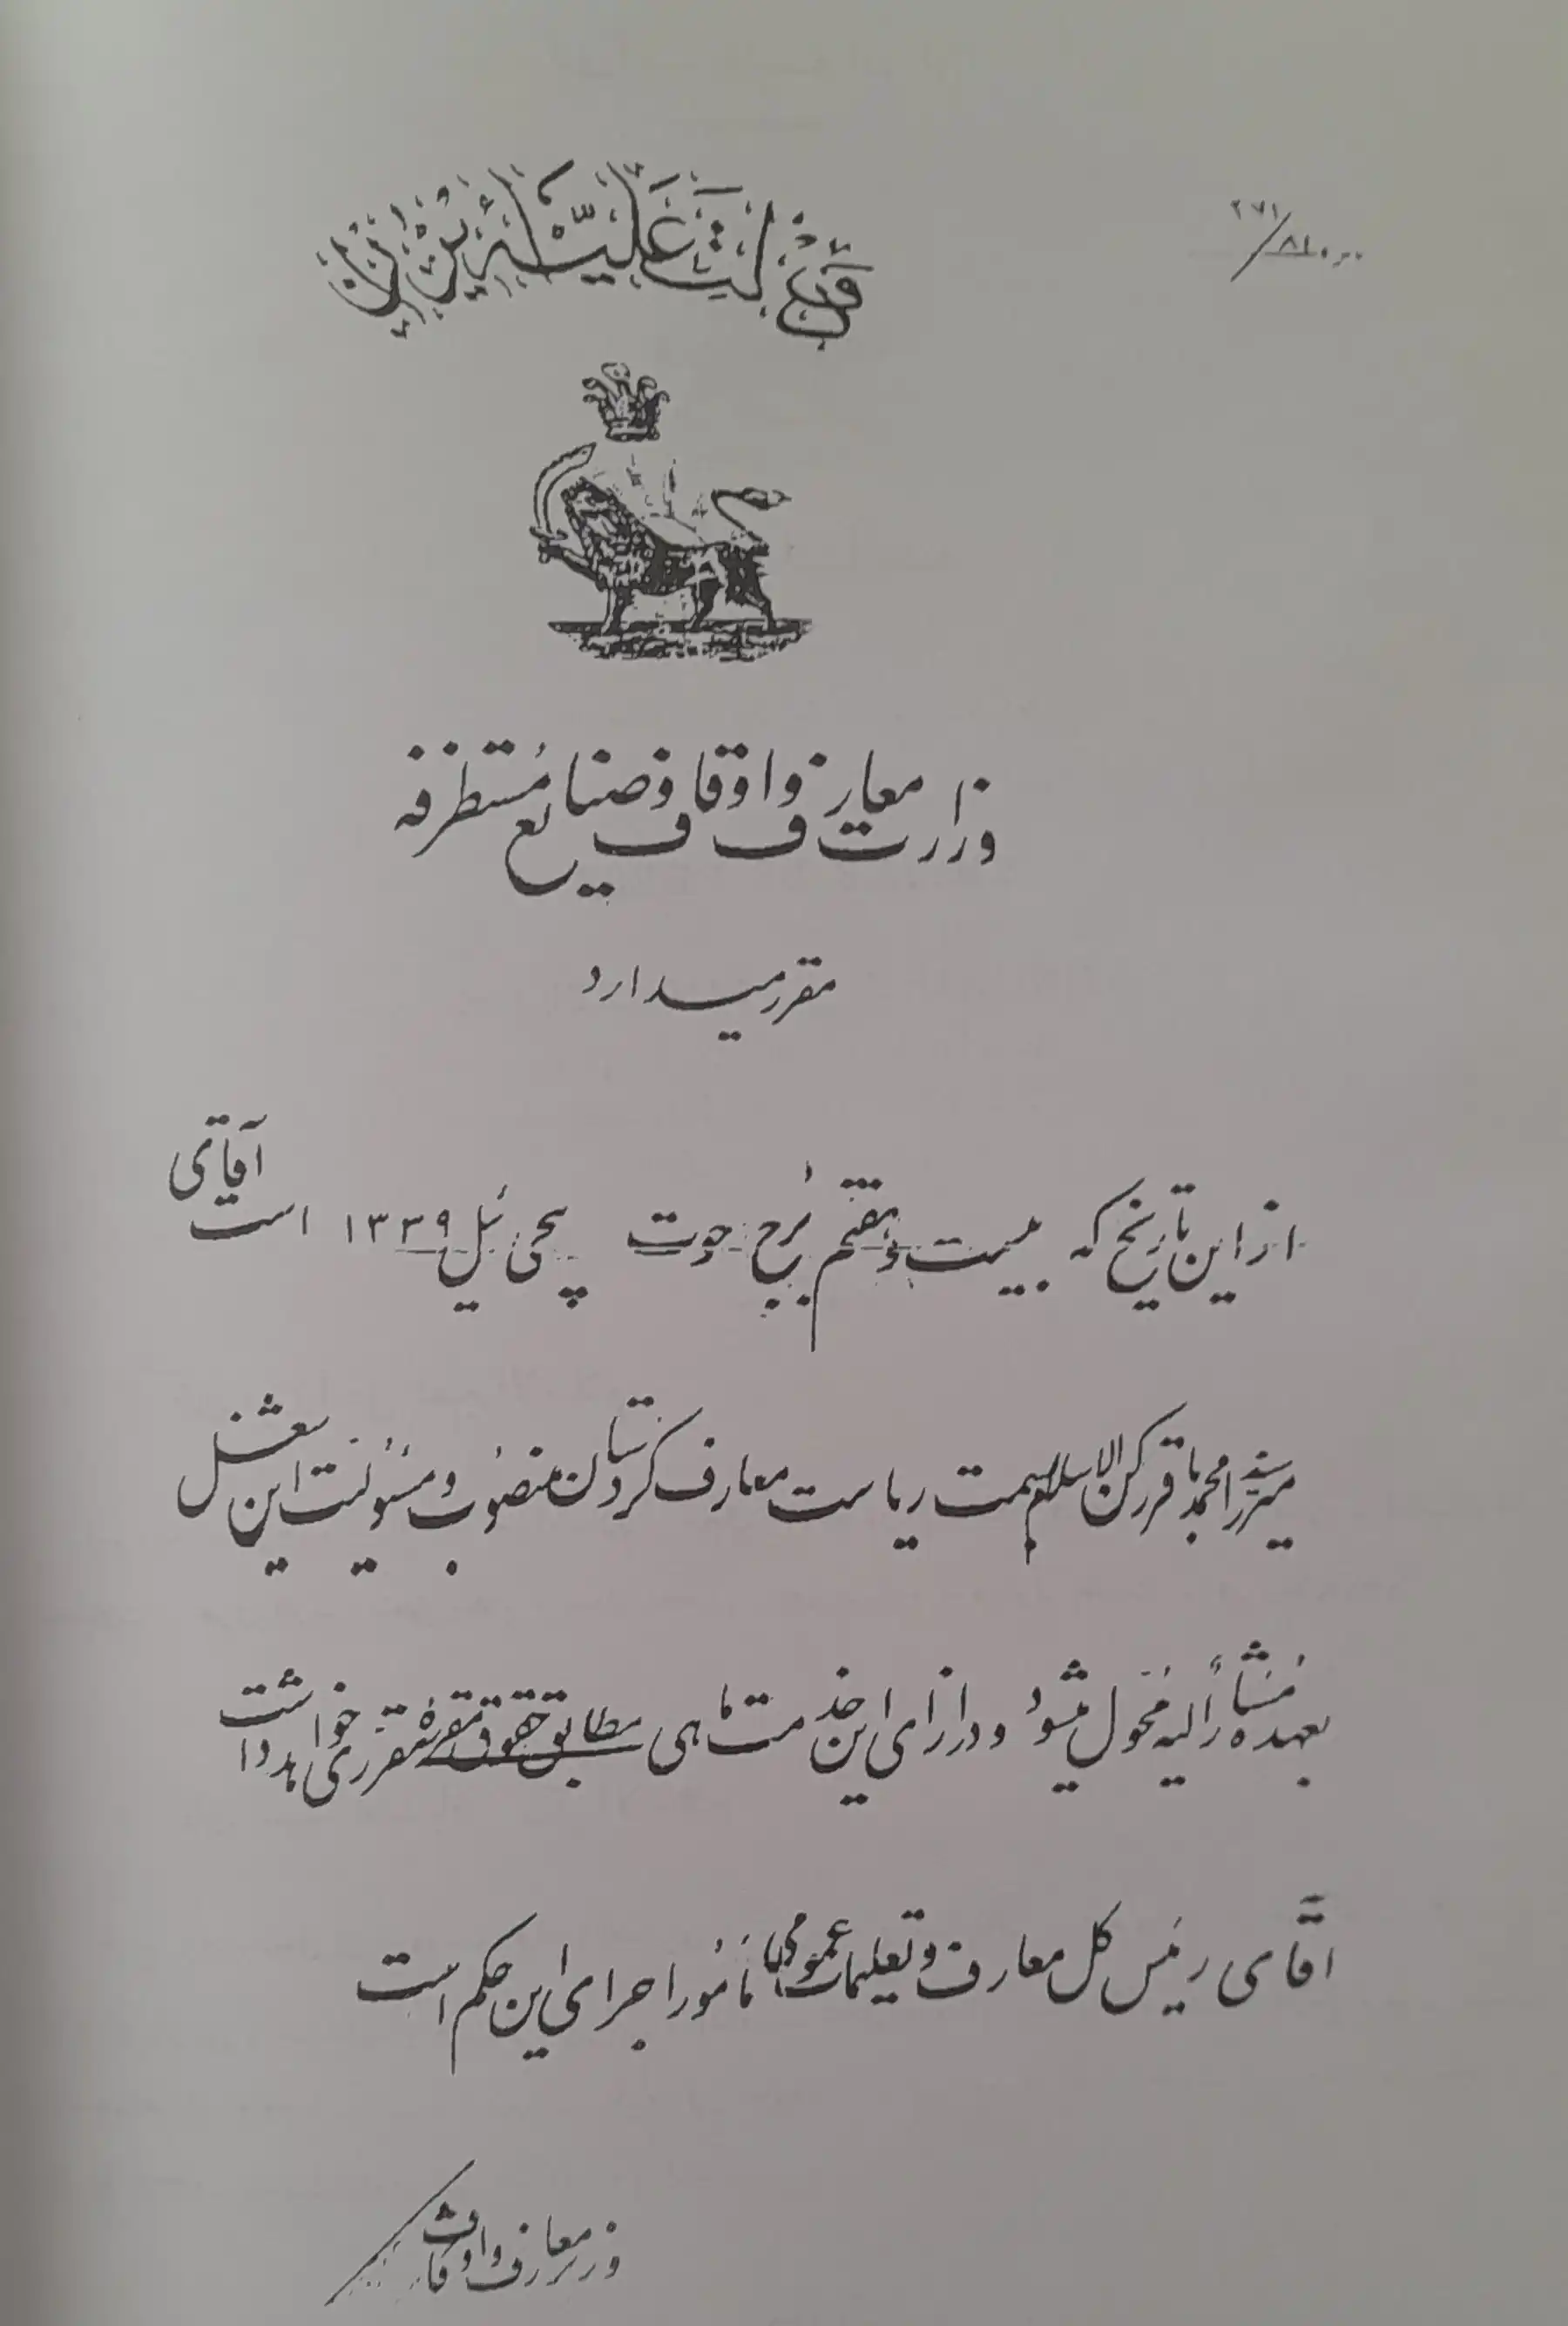 دولت علیّه ایران
وزارت معارف و اوقاف و صنایع مستظرفه
مقرر میدارد
از این تاریخ که بیست و هفتم برج حوت پیچی ئیل ۱۳۳۹ است آقای
میرزا سید محمد باقر رکن الاسلام بسمت ریاست معارف کردستان منصوب و مسئولیت این شغل
بعهده مشارٌالیه محوّل میشود و در ازای این خدمت ماهی مطابق حقوق مقرره مقرری خواهد داشت
آقای رئیس کل معارف و تعلیمات عمومی مأمور اجرای این حکم است
وزیر معارف و اوقاف